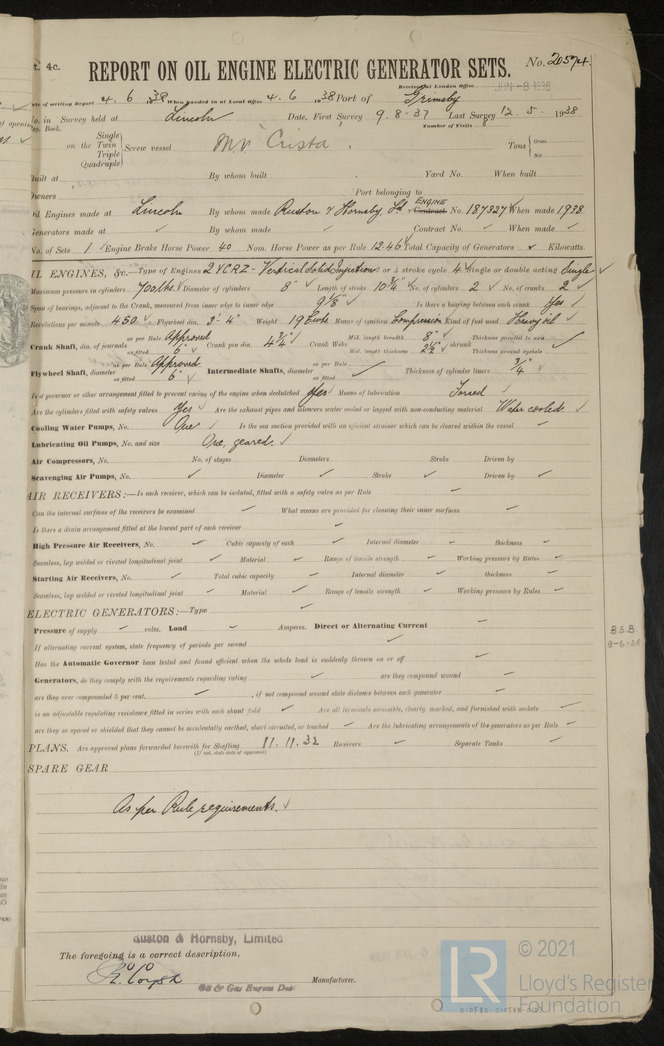 t. 4c.
REPORT ON OIL ENGINE ELECTRIC GENERATOR SETS. No. 20574.
Received at London Office JUN -8 1938
ate of writing Report 4. 6 .38 When handed in at Local Office 4. 6 1938 Port of Grimsby
No. in Survey held at Lincoln Date, First Survey 9.8.37 Last Survey 12.5.1938
Reg. Book. Number of Visits
on the Single Twin Triple Quadruple } Screw vessel MV "Crista". Tons { Gross Net
Built at By whom built Yard No. When built
Owners Port belonging to
Oil Engines made at Lincoln By whom made Ruston & Hornsby Ld ENGINE Contract No. 187327 When made 1938
Generators made at ✓ By whom made ✓ Contract No. ✓ When made ✓
No. of Sets 1 ✓ Engine Brake Horse Power 40 Nom. Horse Power as per Rule 12.46 Total Capacity of Generators ✓ Kilowatts.
IL ENGINES, &c.—Type of Engines 2 VCRZ - Vertical Solid Injection 2 or 4 stroke cycle 4 ✓ Single or double acting Single ✓
Maximum pressure in cylinders 700 lbs. ✓ Diameter of cylinders 8" ✓ Length of stroke No. of cylinders 2 ✓ No. of cranks 2 ✓
Span of bearings, adjacent to the Crank, measured from inner edge to inner edge Is there a bearing between each crank Yes ✓
Revolutions per minute 450 ✓ Flywheel dia. 3'-4" Weight 19 Cwts Means of ignition Compression Kind of fuel used Heavy oil ✓
Crank Shaft, dia. of journals as per Rule Approved as fitted 6" ✓ Crank pin dia. Crank Webs Mid. length breadth 8" ✓ Thickness parallel to axis
Mid. length thickness 2½" ✓ shrunk Thickness around eyehole ✓
Flywheel Shaft, diameter as per Rule Approved as fitted 6" ✓ Intermediate Shafts, diameter as per Rule as fitted ✓ Thickness of cylinder liners ¾" ✓
Is a governor or other arrangement fitted to prevent racing of the engine when declutched Yes ✓ Means of lubrication Forced ✓
Are the cylinders fitted with safety valves Yes ✓ Are the exhaust pipes and silencers water cooled or lagged with non-conducting material Water cooled. ✓
Cooling Water Pumps, No. One ✓ Is the sea suction provided with an efficient strainer which can be cleared within the vessel ✓
Lubricating Oil Pumps, No. and size One, geared. ✓
Air Compressors, No. No. of stages Diameters Stroke Driven by
Scavenging Air Pumps, No. ✓ Diameter ✓ Stroke ✓ Driven by ✓
AIR RECEIVERS:—Is each receiver, which can be isolated, fitted with a safety valve as per Rule ✓
Can the internal surfaces of the receivers be examined ✓ What means are provided for cleaning their inner surfaces ✓
Is there a drain arrangement fitted at the lowest part of each receiver ✓
High Pressure Air Receivers, No. ✓ Cubic capacity of each ✓ Internal diameter ✓ thickness ✓
Seamless, lap welded or riveted longitudinal joint ✓ Material ✓ Range of tensile strength ✓ Working pressure by Rules ✓
Starting Air Receivers, No. ✓ Total cubic capacity ✓ Internal diameter ✓ thickness ✓
Seamless, lap welded or riveted longitudinal joint ✓ Material ✓ Range of tensile strength ✓ Working pressure by Rules ✓
ELECTRIC GENERATORS:—Type ✓
Pressure of supply ✓ volts. Load ✓ Amperes. Direct or Alternating Current ✓
If alternating current system, state frequency of periods per second ✓
Has the Automatic Governor been tested and found efficient when the whole load is suddenly thrown on or off ✓
Generators, do they comply with the requirements regarding rating ✓ are they compound wound ✓
are they over compounded 5 per cent. ✓, if not compound wound state distance between each generator ✓
is an adjustable regulating resistance fitted in series with each shunt field ✓ Are all terminals accessible, clearly marked, and furnished with sockets ✓
are they so spaced or shielded that they cannot be accidentally earthed, short circuited, or touched ✓ Are the lubricating arrangements of the generators as per Rule ✓
PLANS. Are approved plans forwarded herewith for Shafting 11.11.32 Receivers ✓ Separate Tanks ✓
(If not, state date of approval)
SPARE GEAR
As per Rule requirements. ✓
B.S.B.
9-6-38
Ruston & Hornsby, Limited
The foregoing is a correct description,
Manufacturer.
Oil & Gas Engine Dept
LR © 2021
Lloyd's Register
Foundation